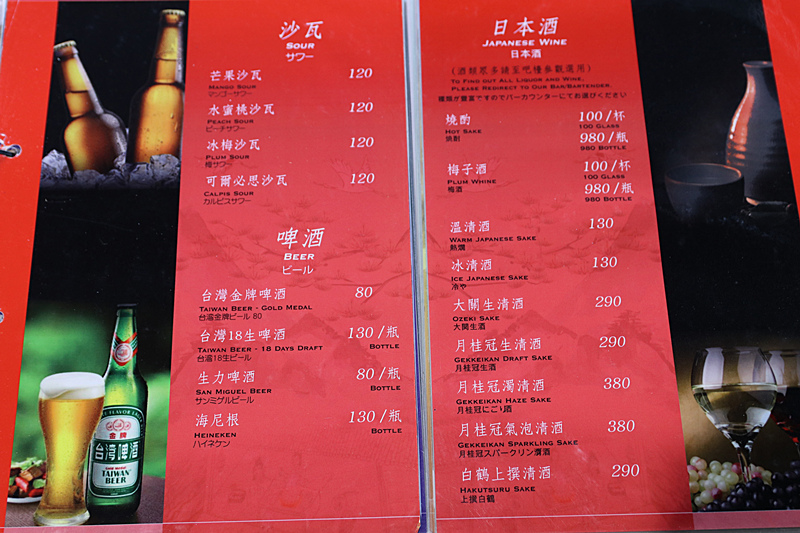 沙瓦
SOUR
サワー
芒果沙瓦 120
MANGO SOUR
マンゴーサワー
水蜜桃沙瓦 120
PEACH SOUR
ピーチサワー
冰梅沙瓦 120
PLUM SOUR
梅サワー
可爾必思沙瓦 120
CALPIS SOUR
カルピスサワー
啤酒
BEER
ビール
台灣金牌啤酒 80
TAIWAN BEER - GOLD MEDAL
台湾金牌ビール 80
台灣18生啤酒 130/瓶
TAIWAN BEER - 18 DAYS DRAFT BOTTLE
台湾18生ビール
生力啤酒 80/瓶
SAN MIGUEL BEER BOTTLE
サンミゲルビール
海尼根 130/瓶
HEINEKEN BOTTLE
ハイネケン
金牌
台灣啤酒
GOLD MEDAL
TAIWAN BEER
日本酒
JAPANESE WINE
日本酒
(酒類眾多請至吧檯參觀選用)
TO FIND OUT ALL LIQUOR AND WINE,
PLEASE REDIRECT TO OUR BAR/BARTENDER.
種類が豊富ですのでバーカウンターにてお選びください
燒酌 100/杯
HOT SAKE 100 GLASS
焼酎 980/瓶
980 BOTTLE
梅子酒 100/杯
PLUM WHINE 100 GLASS
梅酒 980/瓶
980 BOTTLE
溫清酒 130
WARM JAPANESE SAKE
熱燗
冰清酒 130
ICE JAPANESE SAKE
冷や
大關生清酒 290
OZEKI SAKE
大関生酒
月桂冠生清酒 290
GEKKEIKAN DRAFT SAKE
月桂冠生酒
月桂冠濁清酒 380
GEKKEIKAN HAZE SAKE
月桂冠にごり酒
月桂冠氣泡清酒 380
GEKKEIKAN SPARKLING SAKE
月桂冠スパークリン清酒
白鶴上撰清酒 290
HAKUTSURU SAKE
上撰白鶴